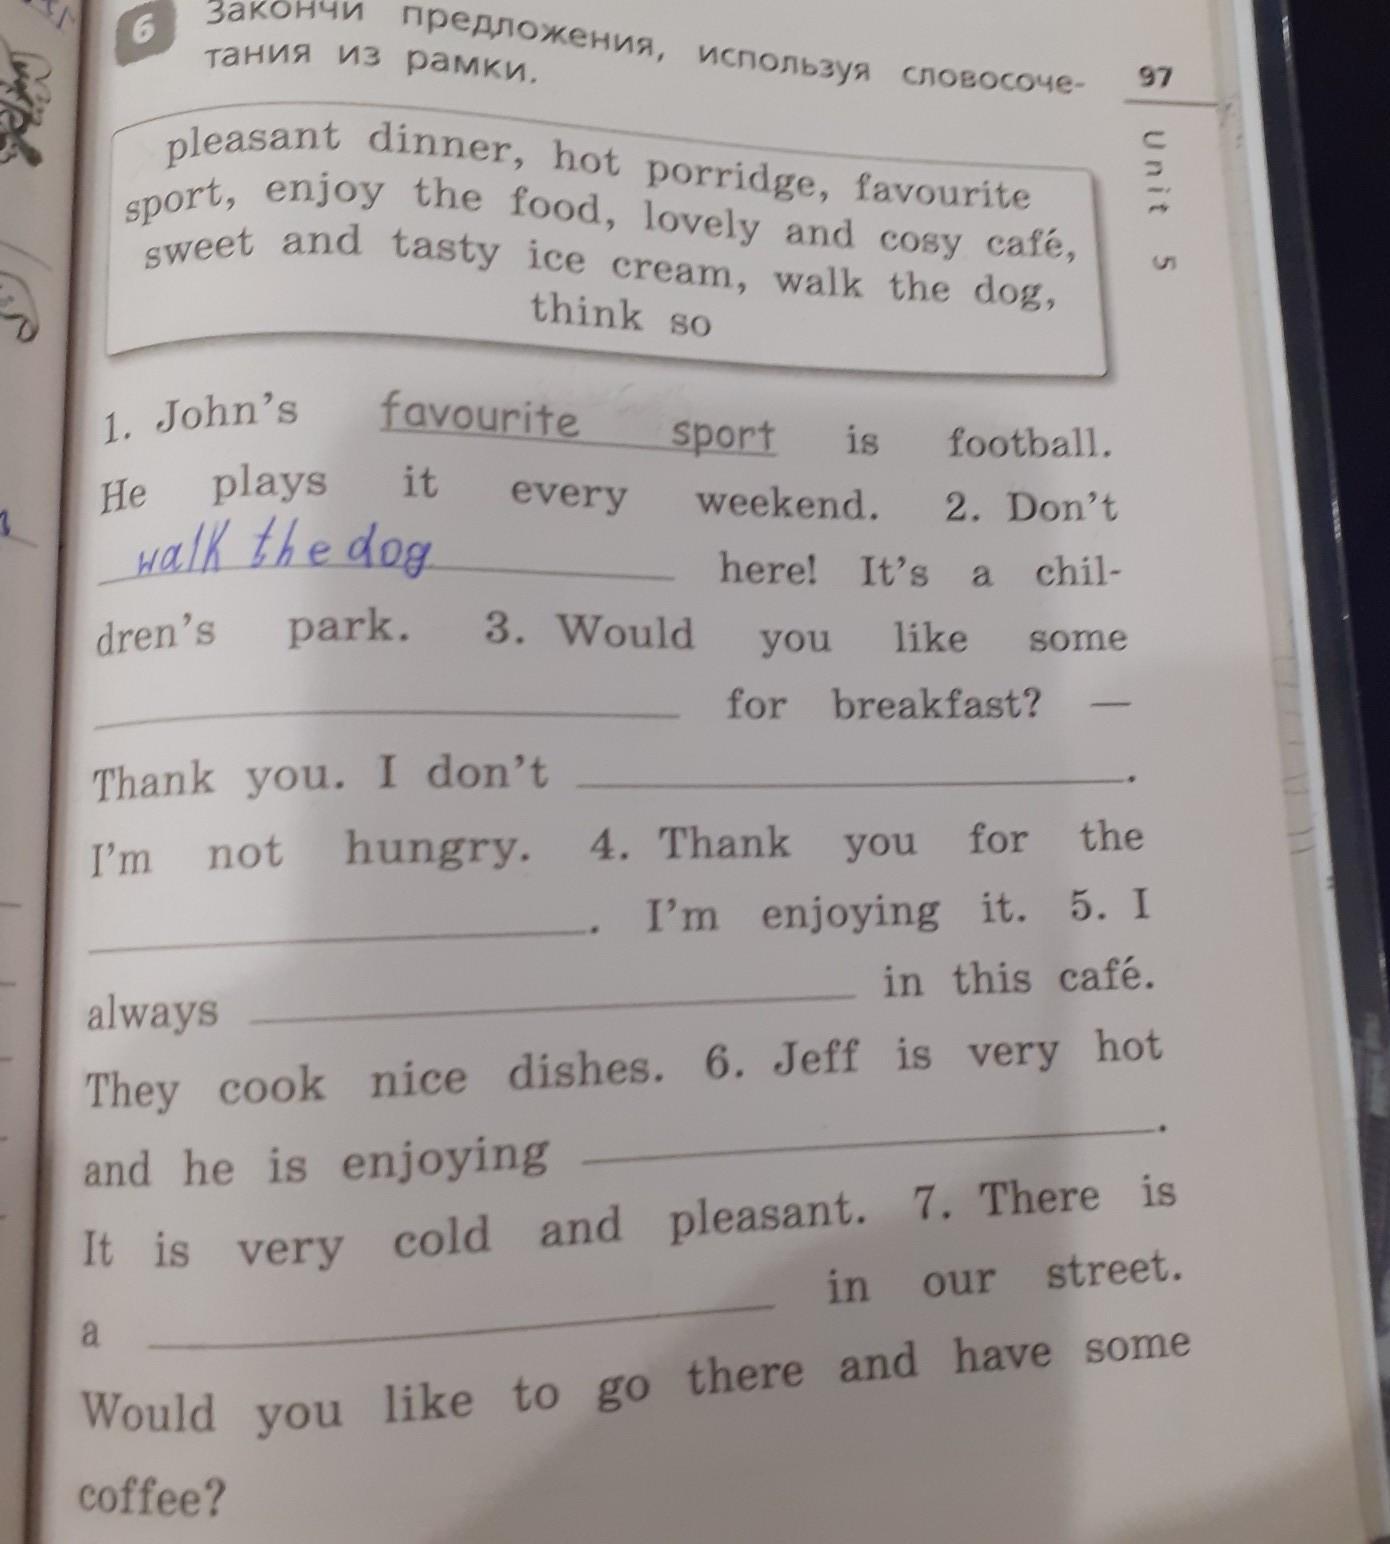 6 Закончи предложения, используя словосоче-
97
тания из рамки.
Unit 5
pleasant dinner, hot porridge, favourite
sport, enjoy the food, lovely and cosy café,
sweet and tasty ice cream, walk the dog,
think so
1. John's favourite sport is football.
He plays it every weekend. 2. Don't
walk the dog here! It's a chil-
dren's park. 3. Would you like some
for breakfast? —
Thank you. I don't .
I'm not hungry. 4. Thank you for the
. I'm enjoying it. 5. I
always in this café.
They cook nice dishes. 6. Jeff is very hot
and he is enjoying .
It is very cold and pleasant. 7. There is
a in our street.
Would you like to go there and have some
coffee?